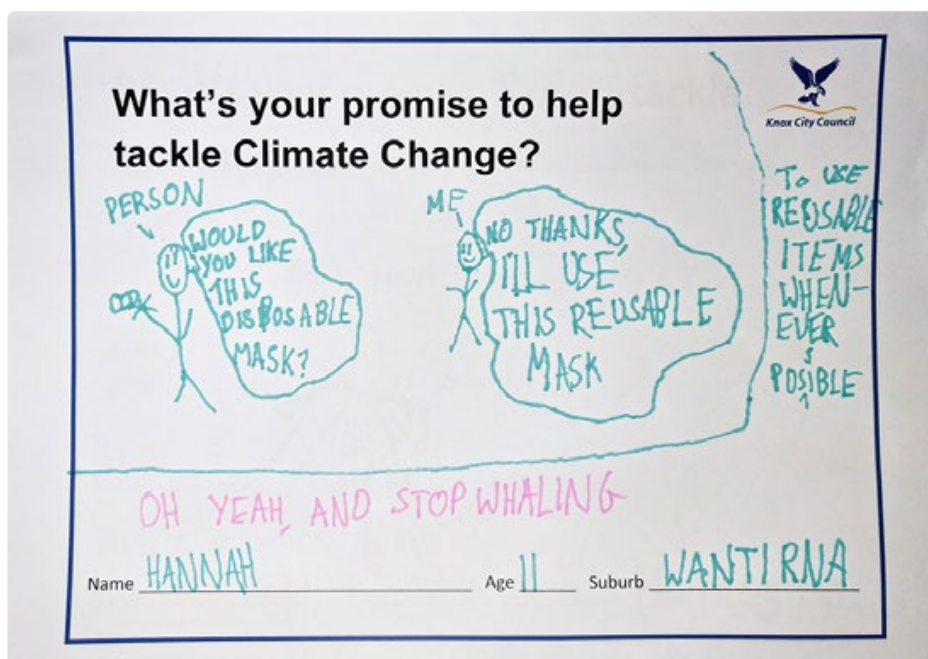 What's your promise to help
tackle Climate Change?
Knox City Council
PERSON
WOULD
YOU LIKE
THIS
DISPOSABLE
MASK?
ME
NO THANKS,
I'LL USE
THIS REUSABLE
MASK
TO USE
REUSABLE
ITEMS
WHEN-
EVER
s
POSIBLE
OH YEAH, AND STOP WHALING
Name HANNAH Age 11 Suburb WANTIRNA